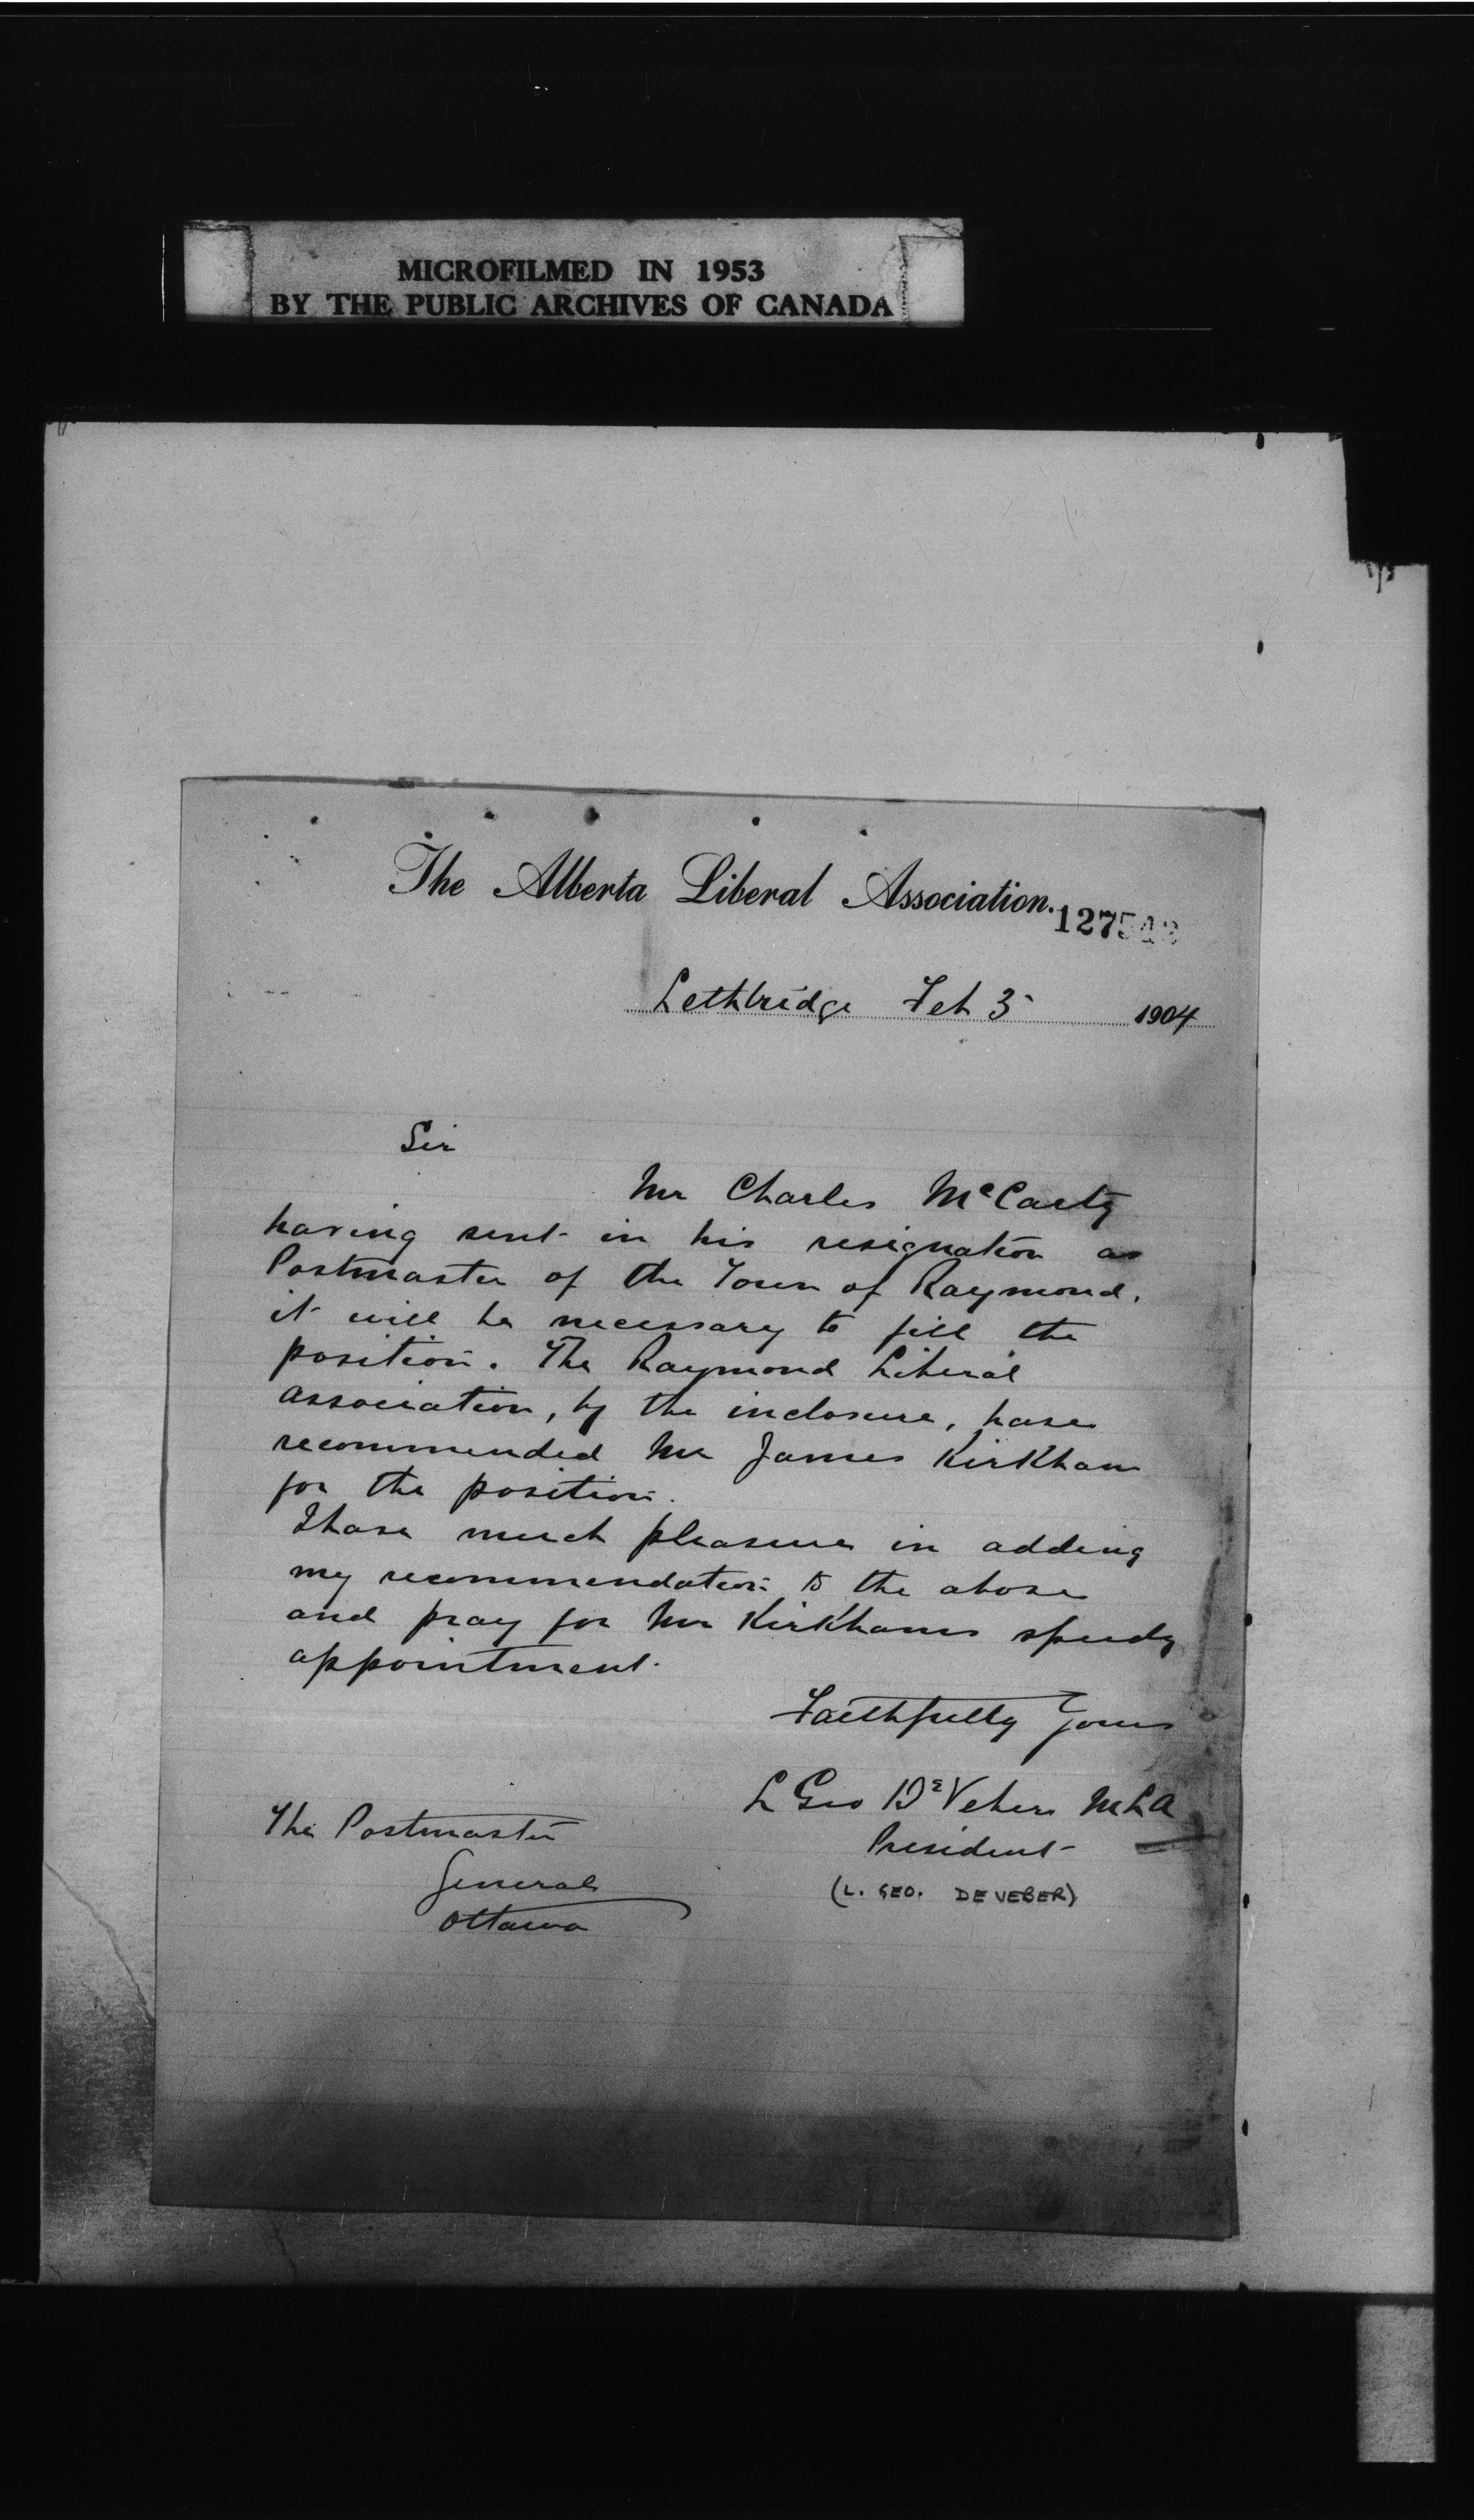 MICROFILMED IN 1953
BY THE PUBLIC ARCHIVES OF CANADA
The Alberta Liberal Association.
127543
Lethbridge Feb 3 1904
Sir
Mr Charles McCarty
having sent in his resignation as
Postmaster of the Town of Raymond.
it will be necessary to fill the
position. The Raymond Liberal
association, by the inclosure, have
recommended Mr James Kirkham
for the position.
I have much pleasure in adding
my recommendation to the above
and pray for Mr Kirkhams speedy
appointment.
Faithfully Yours
L Geo De Veber MLA
President
(L. GEO. DE VEBER)
The Postmaster
General
Ottawa